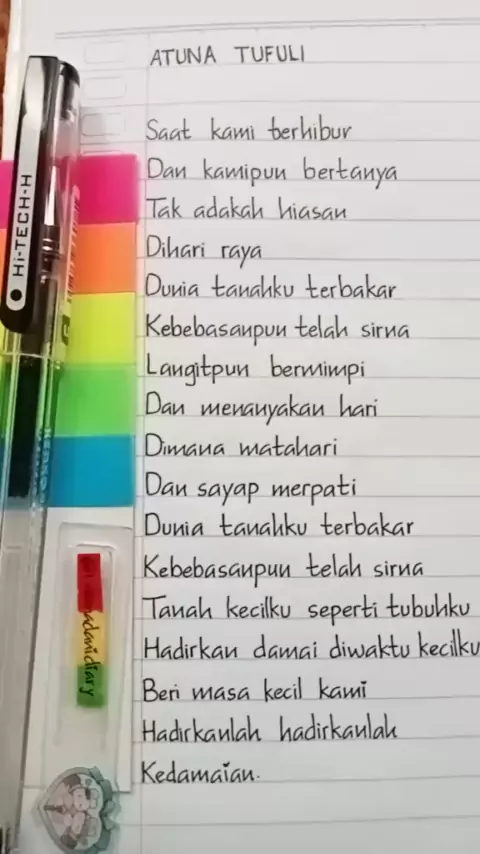 ATUNA TUFULI
Saat kami terhibur
Dan kamipun bertanya
Tak adakah hiasan
Dihari raya
Dunia tanahku terbakar
Kebebasanpun telah sirna
Langitpun bermimpi
Dan menanyakan hari
Dimana matahari
Dan sayap merpati
Dunia tanahku terbakar
Kebebasanpun telah sirna
Tanah kecilku seperti tubuhku
Hadirkan damai diwaktu kecilku
Beri masa kecil kami
Hadirkanlah hadirkanlah
Kedamaian.
Hi-TECH-H